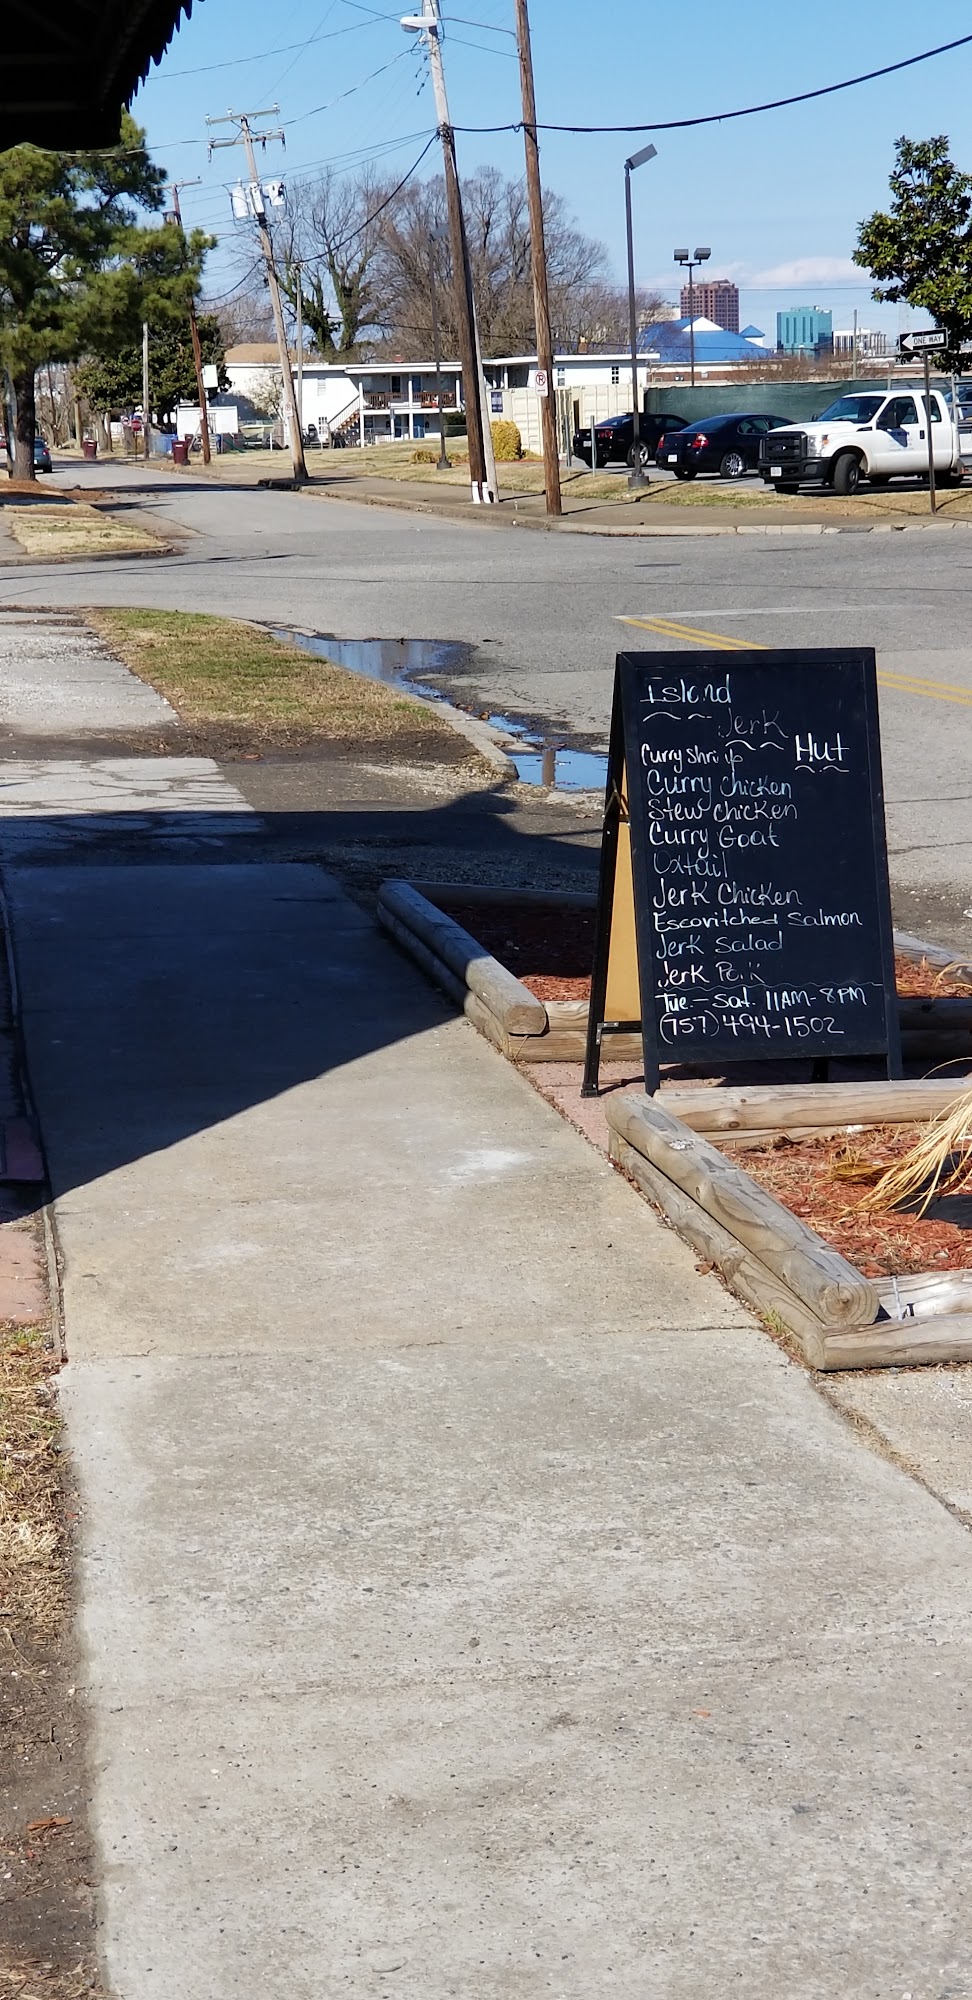 ONE WAY
Island
Jerk
Hut
Curry Shrimp
Curry Chicken
Stew Chicken
Curry Goat
Oxtail
Jerk Chicken
Escovitched Salmon
Jerk Salad
Jerk Pork
Tue.-Sat. 11AM-8PM
(757) 494-1502